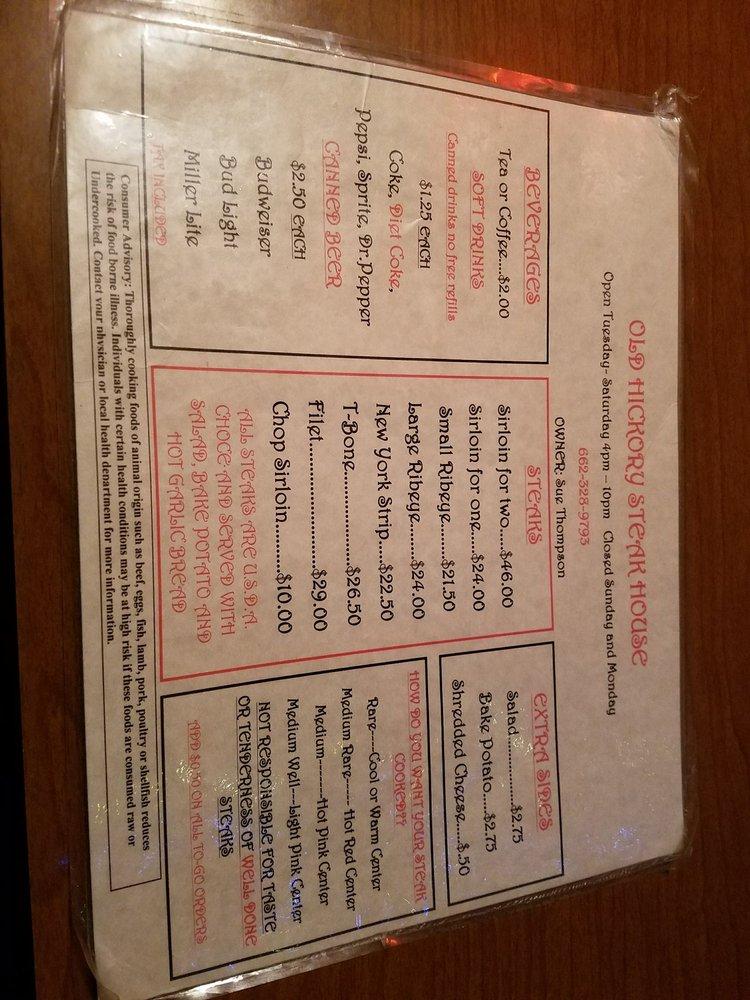 OLD HICKORY STEAK HOUSE
Open Tuesday- Saturday 4pm – 10pm Closed Sunday and Monday
662-328-9793
OWNER: Sue Thompson
BEVERAGES
Tea or Coffee....$2.00
SOFT DRINKS
Canned drinks no free refills
$1.25 EACH
Coke, Diet Coke,
Pepsi, Sprite, Dr.Pepper
CANNED BEER
$2.50 EACH
Budweiser
Bud Light
Miller Lite
TAX INCLUDED
STEAKS
Sirloin for two.....$46.00
Sirloin for one....$24.00
Small Ribeye......$21.50
Large Ribeye......$24.00
New York Strip....$22.50
T-Bone................$26.50
Filet......................$29.00
Chop Sirloin..........$10.00
ALL STEAKS ARE U.S.D.A.
CHOCE AND SERVED WITH
SALAD, BAKE POTATO AND
HOT GARLIC BREAD
EXTRA SIDES
Salad..............$2.75
Bake Potato.....$2.75
Shredded Cheese.....$.50
HOW DO YOU WANT YOUR STEAK
COOKED??
Rare----Cool or Warm Center
Medium Rare----- Hot Red Center
Medium--------Hot Pink Center
Medium Well---Light Pink Center
NOT RESPONSIBLE FOR TASTE
OR TENDERNESS OF WELL DONE
STEAKS
ADD $0.50 ON ALL TO-GO ORDERS
Consumer Advisory: Thoroughly cooking foods of animal origin such as beef, eggs, fish, lamb, pork, poultry or shellfish reduces
the risk of food borne illness. Individuals with certain health conditions may be at high risk if these foods are consumed raw or
Undercooked. Contact your physician or local health department for more information.